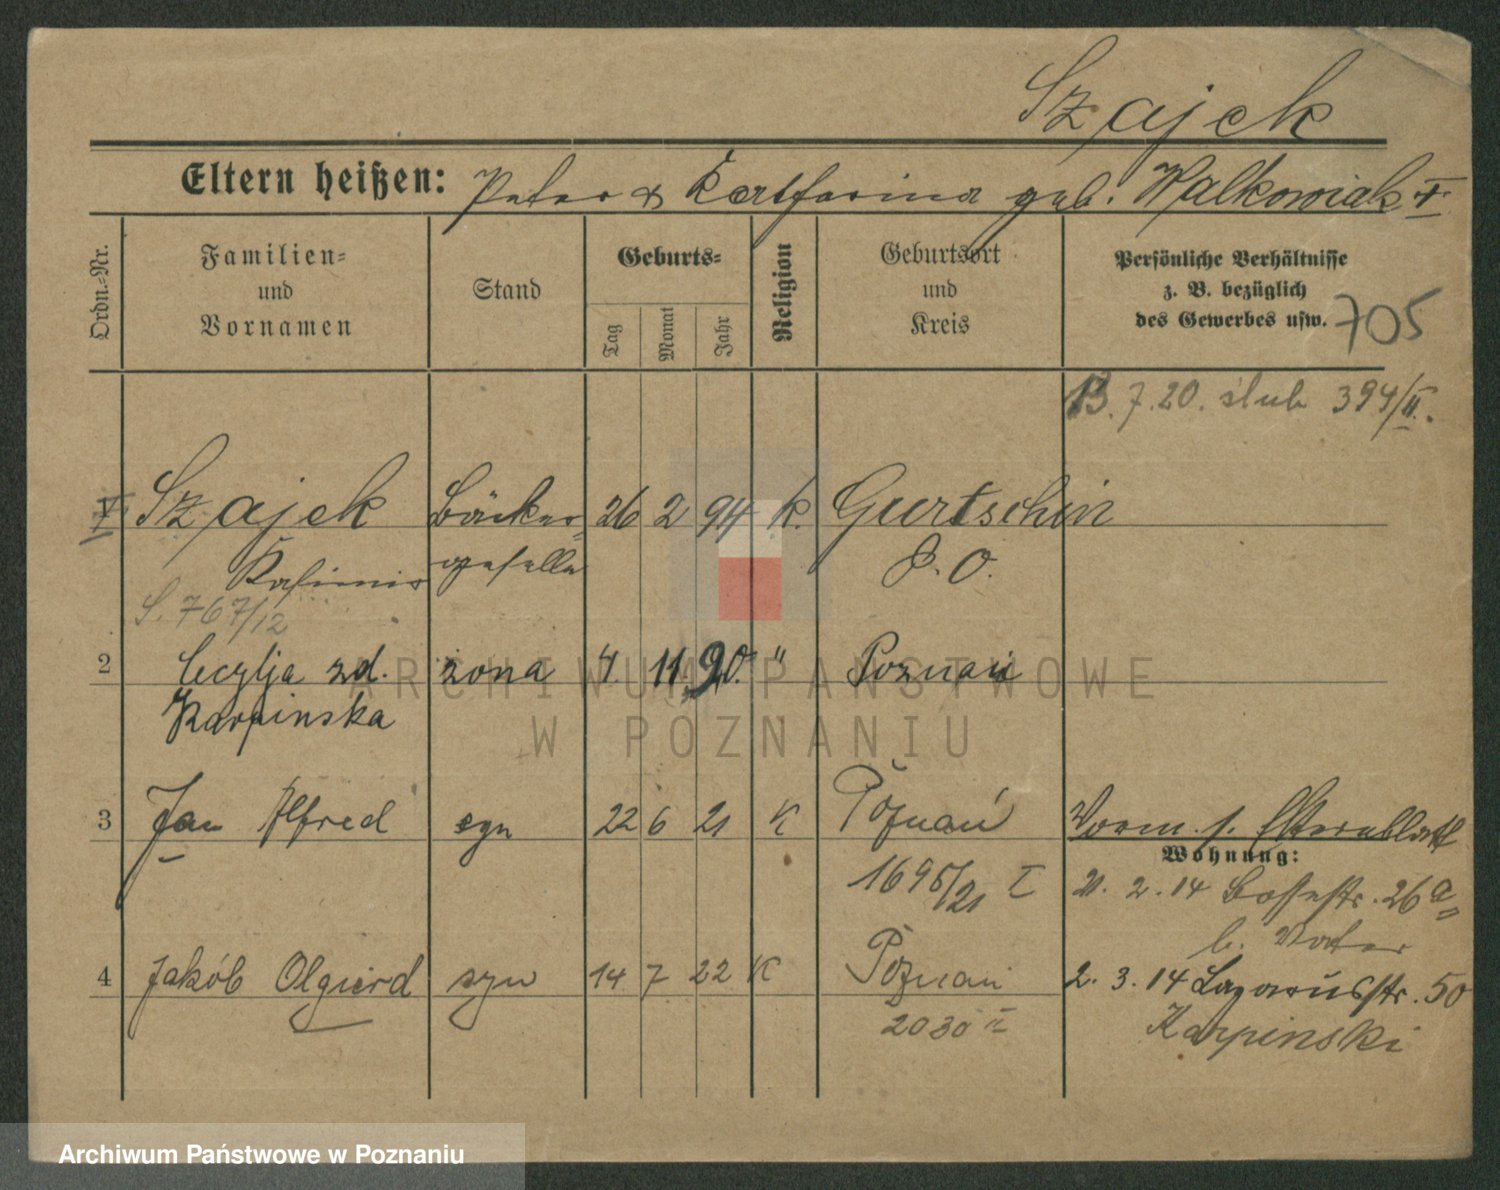 Szajek
Eltern heißen: Peter & Katharina geb. Walkowiak
Ordn.-Nr.
Familien- und Vornamen
Stand
Geburts-
Tag
Monat
Jahr
Religion
Geburtsort und Kreis
Persönliche Verhältnisse
z. B. bezüglich
des Gewerbes usw.
705
13.7.20. ślub 394/II.
Szajek Bäcker- 26 2 94 k. Gurtschin
Kasimir geselle P. O.
S. 767/12
2 Cecylja zd. żona 4. 11. 90. " Poznań
Karpinska
3 Jan Alfred syn 22 6 21 K Poznań Vorm. s. Elternblatt
Wohnung:
1695/21 I 21. 2. 14 Bossestr. 26a
b. Vater
4 Jakób Olgierd syn 14 7 22 K Poznań 2. 3. 14 Lazarusstr. 50
2030 II Karpinski
ARCHIWUM PAŃSTWOWE
W POZNANIU
Archiwum Państwowe w Poznaniu